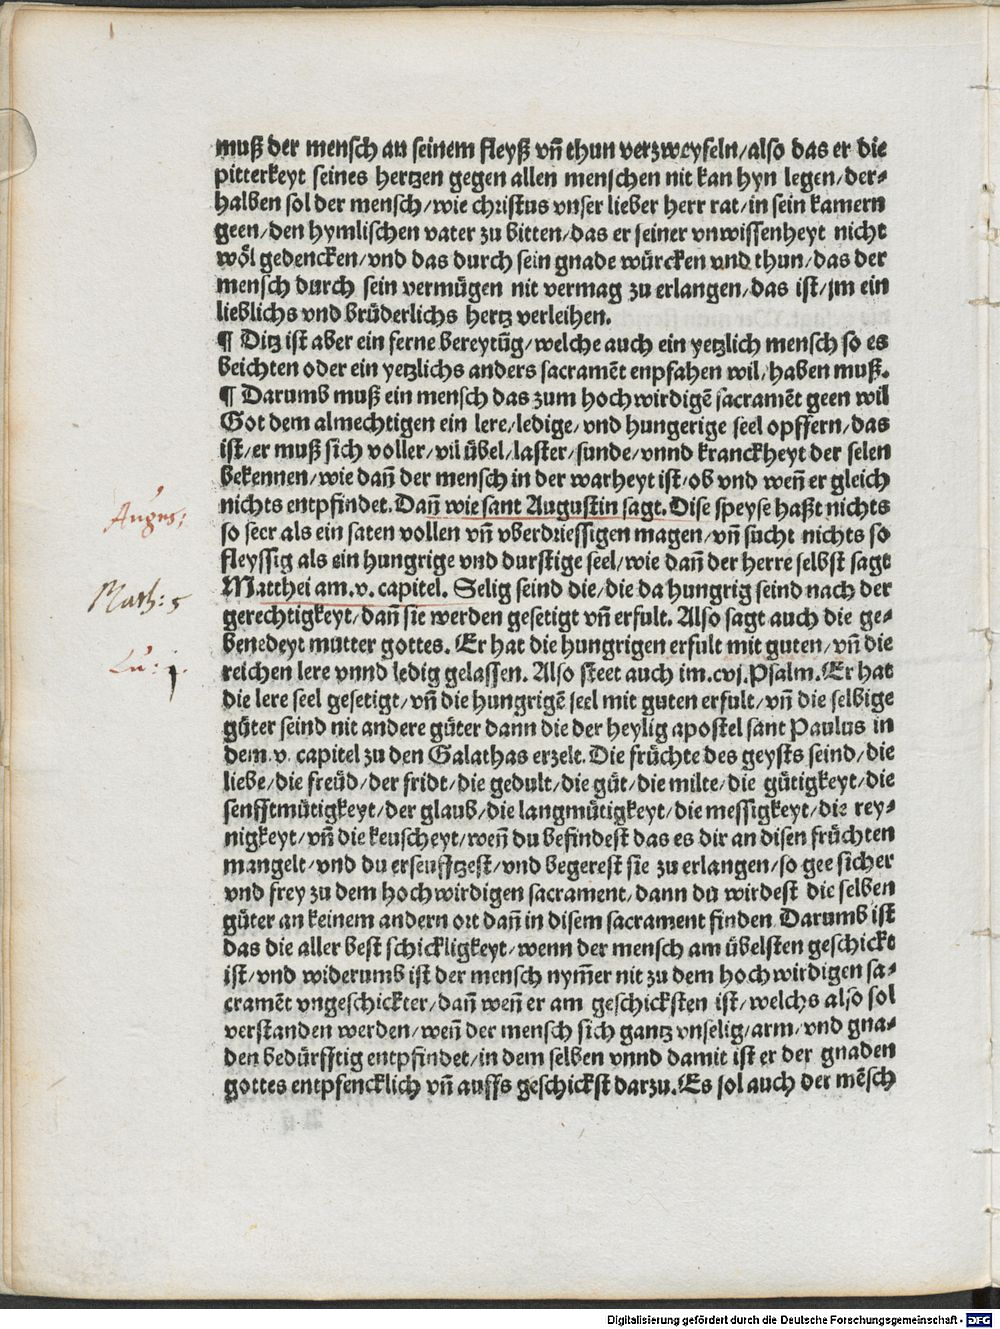 muß der mensch an seinem fleyß vñ thun verzweyfeln/also das er die
pitterkeyt seines hertzen gegen allen menschen nit kan hyn legen/der-
halben sol der mensch/wie christus vnser lieber herr rat/in sein kamern
geen/den hymlischen vater zu bitten/das er seiner vnwissenheyt nicht
wöl gedencken/vnd das durch sein gnade würcken vnd thun/das der
mensch durch sein vermügen nit vermag zu erlangen/das ist/jm ein
lieblichs vnd brüderlichs hertz verleihen.
¶ Ditz ist aber ein ferne bereytũg/welche auch ein yetzlich mensch so es
beichten oder ein yetzlichs anders sacramēt enpfahen wil/haben muß.
¶ Darumb muß ein mensch das zum hochwirdigē sacramēt geen wil
Got dem almechtigen ein lere/ledige/vnd hungerige seel opffern/das
ist/er muß sich voller/vil übel/laster/sunde/vnnd kranckheyt der selen
bekennen/wie dañ der mensch in der warheyt ist/ob vnd weñ er gleich
nichts entpfindet. Dañ wie sant Augustin sagt. Dise speyse haßt nichts
Augus:
so seer als ein saten vollen vñ vberdriessigen magen/vñ sucht nichts so
fleyssig als ein hungrige vnd durstige seel/wie dañ der herre selbst sagt
Matthei am .v. capitel. Selig seind die/die da hungrig seind nach der
Math: 5
gerechtigkeyt/dañ sie werden gesetigt vñ erfult. Also sagt auch die ge-
benedeyt mutter gottes. Er hat die hungrigen erfult mit guten/vñ die
reichen lere vnnd ledig gelassen. Also steet auch im .cvj. Psalm. Er hat
Lu: j.
die lere seel gesetigt/vñ die hungrigē seel mit guten erfult/vñ die selbige
güter seind nit andere güter dann die der heylig apostel sant Paulus in
dem .v. capitel zu den Galathas erzelt. Die früchte des geysts seind/die
liebe/die freüd/der fridt/die gedult/die güt/die milte/die gütigkeyt/die
senfftmütigkeyt/der glaub/die langmütigkeyt/die messigkeyt/die rey-
nigkeyt/vñ die keuscheyt/weñ du befindest das es dir an disen früchten
mangelt/vnd du erseufftzest/vnd begerest sie zu erlangen/so gee sicher
vnd frey zu dem hochwirdigen sacrament/dann du wirdest die selben
güter an keinem andern ort dañ in disem sacrament finden Darumb ist
das die aller best schickligkeyt/wenn der mensch am übelsten geschickt
ist/vnd widerumb ist der mensch nym̃er nit zu dem hochwirdigen sa-
cramēt vngeschickter/dañ weñ er am geschicksten ist/welchs also sol
verstanden werden/weñ der mensch sich gantz vnselig/arm/vnd gna-
den bedürfftig entpfindet/in dem selben vnnd damit ist er der gnaden
gottes entpfencklich vñ auffs geschickst darzu. Es sol auch der mēsch
Digitalisierung gefördert durch die Deutsche Forschungsgemeinschaft - DFG